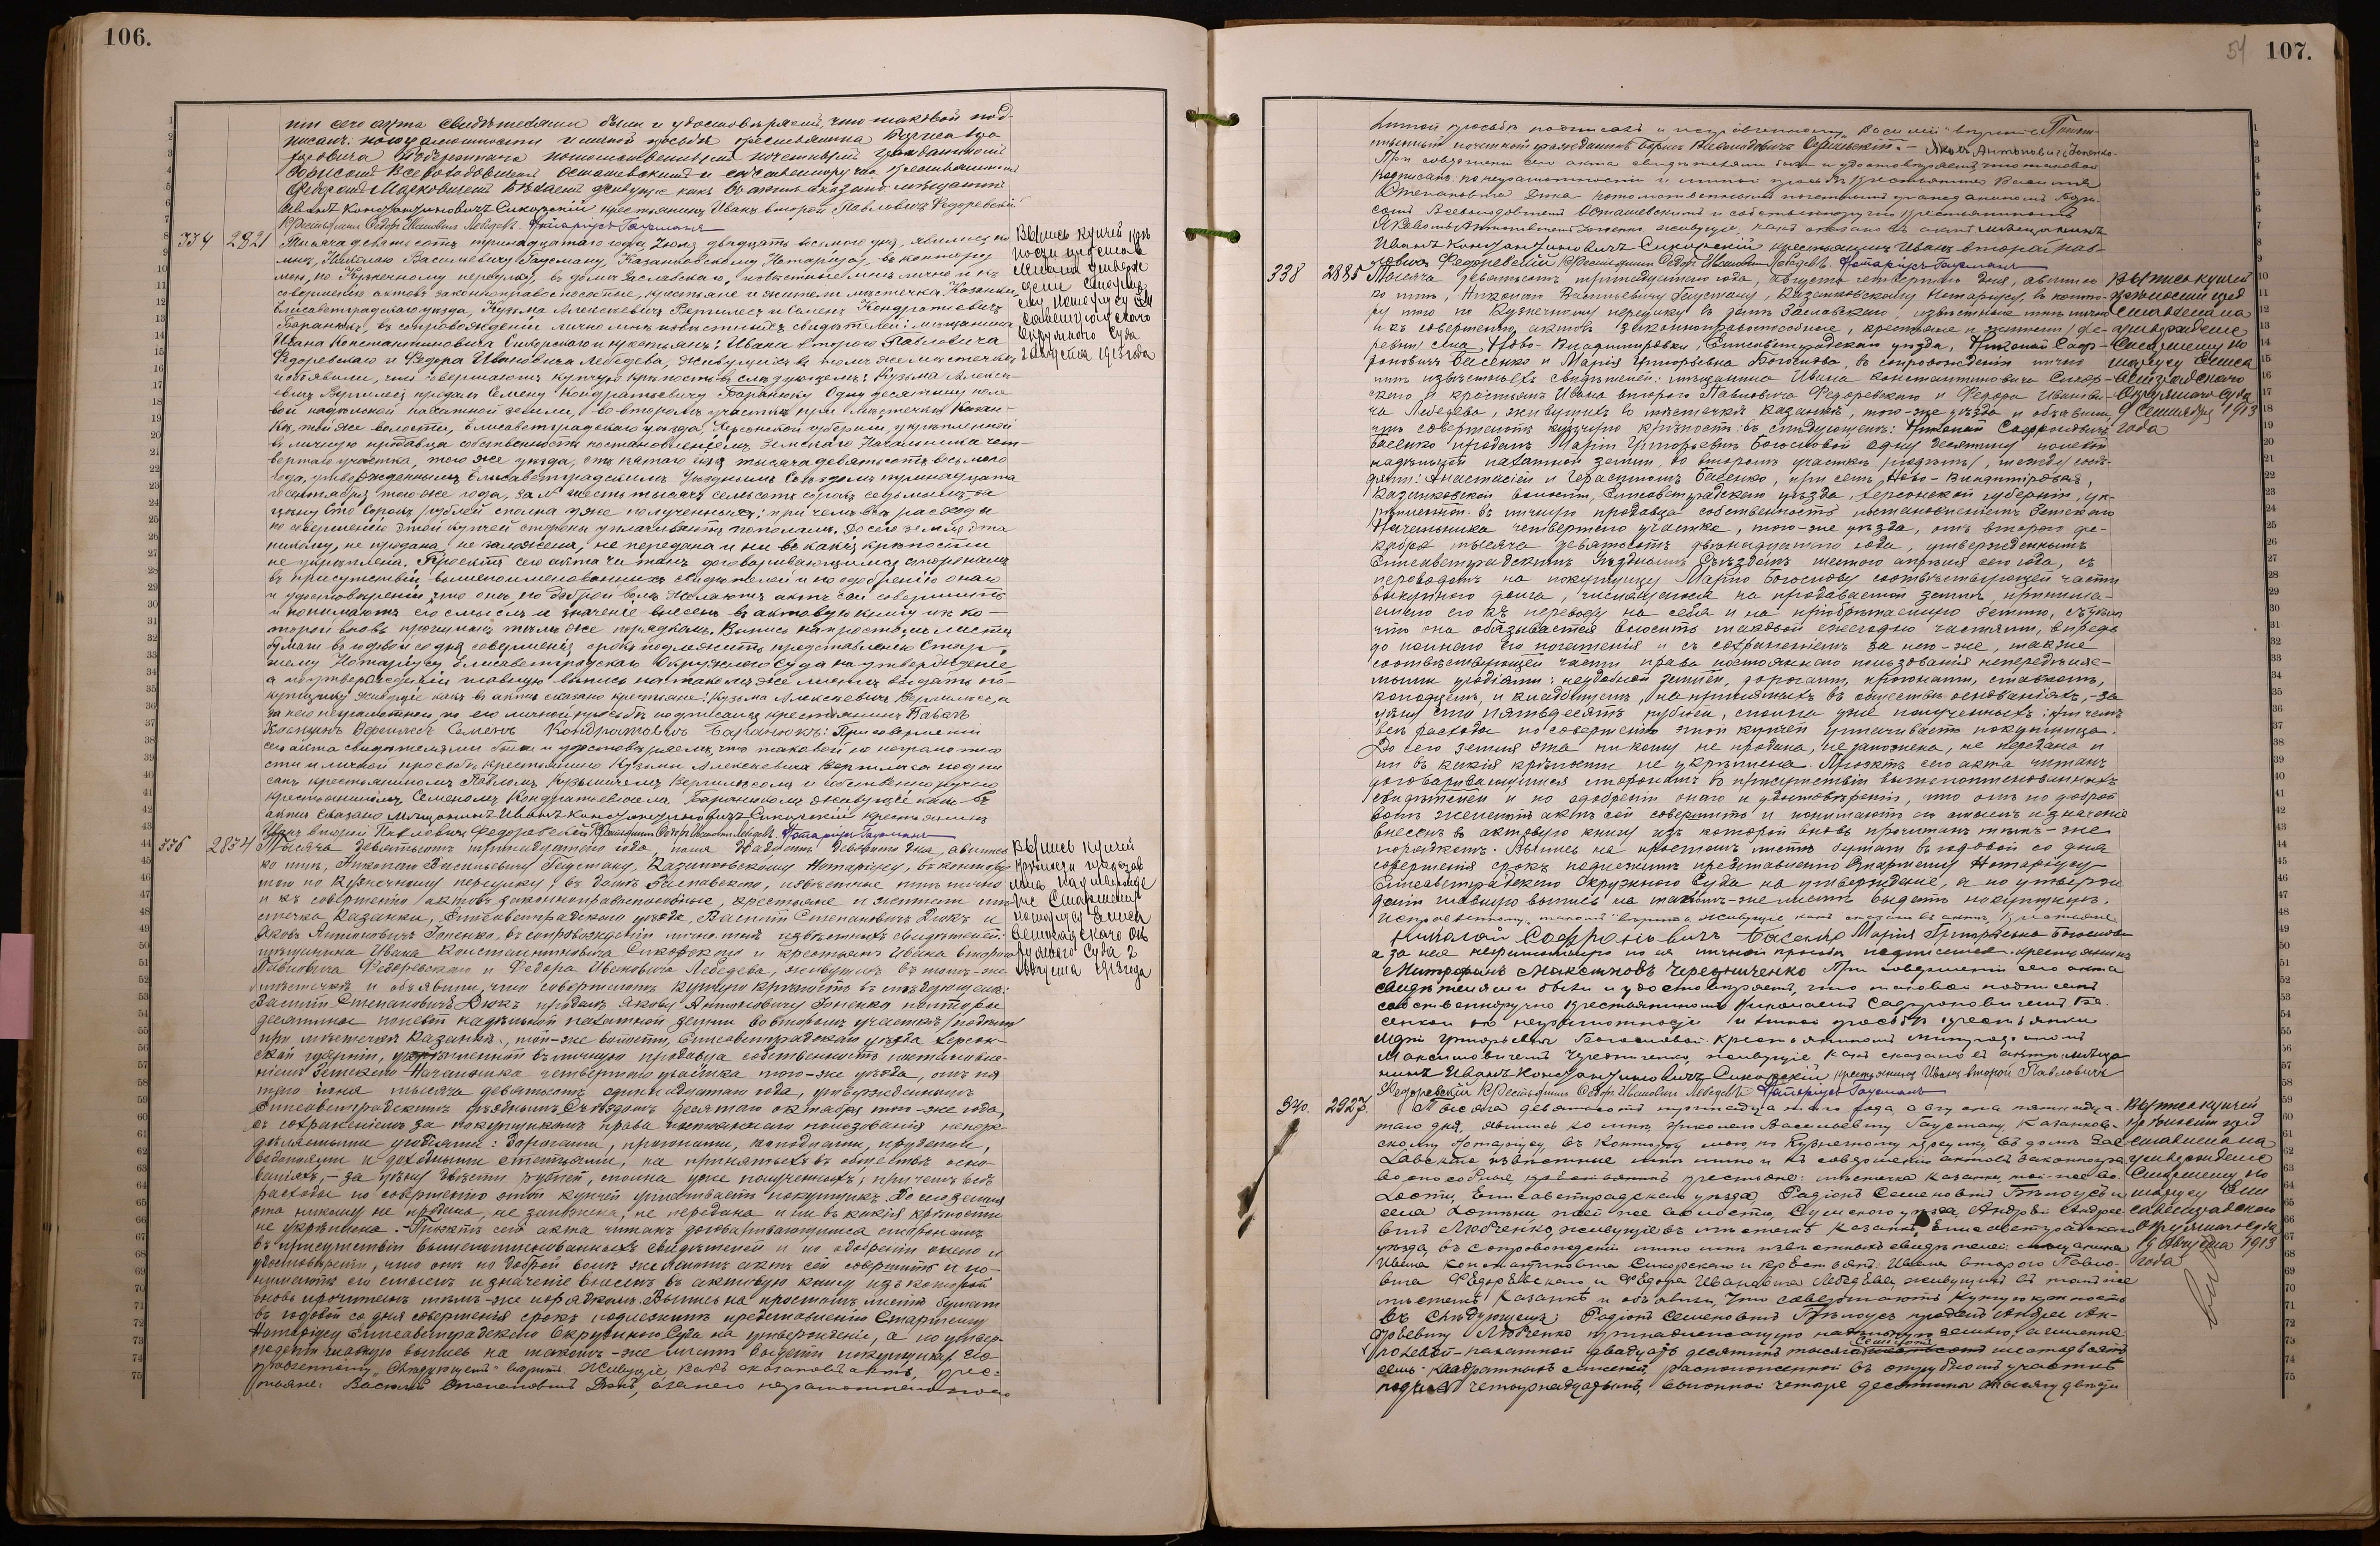 106.
нiи сего акта свидѣтелями были и удостовѣряемъ, что таковой под-
писанъ
потомственный почетный гражданинъ
Иванъ Константиновичъ Сикорскій крестьянинъ Иванъ второй Павловичъ Федоревскій
Крестьянинъ Ѳедоръ Ивановичъ Лебедевъ. Нотаріусъ Гаусманъ
334 2821 Тысяча девятьсотъ тринадцатаго года, Іюля двадцать восьмого дня, явились ко
мнѣ, Николаю Васильевичу Гаусману, Казанковскому Нотаріусу, въ контору
мою, по Кузнечному переулку, въ домѣ Заславскаго, извѣстные мнѣ лично и къ
совершенію актовъ законноправоспособные, крестьяне и жители мѣстечка Казанки,
Елисаветградскаго уѣзда, Кузьма Алексѣевичъ и Семенъ Кондратьевичъ
Баранюкъ, въ сопровожденіи лично мнѣ извѣстныхъ свидѣтелей: мѣщанина
Ивана Константиновича Сикорскаго и крестьянъ: Ивана второго Павловича
Федоревскаго и Федора Ивановича Лебедева, живущихъ въ томъ же мѣстечкѣ
и объявили, что совершаютъ купчую крѣпость въ слѣдующемъ: Кузьма Алексѣ-
евичъ продалъ Семену Кондратьевичу Баранюку одну десятину поле-
вой надѣльной пахатной земли, во второмъ участкѣ при мѣстечкѣ Казан-
кѣ, той же волости, Елисаветградскаго уѣзда, Херсонской губерніи, укрѣпленной
въ личную продавца собственность постановленіемъ Земскаго Начальника чет-
вертаго участка, того же уѣзда, отъ пятаго мая тысяча девятьсотъ восьмого
года, утвержденнымъ Елисаветградскимъ Уѣзднымъ Съѣздомъ тринадцатаго
сентября того же года, за № шесть тысячъ семьсотъ сорокъ седьмымъ за
цѣну сто сорокъ рублей сполна уже полученныхъ; при чемъ всѣ расходы
по совершенію этой купчей стороны уплачиваютъ пополамъ. До сего земля эта
никому, не продана, не заложена, не передана и ни въ какія крѣпости
не укрѣплена. Проектъ сего акта читанъ договаривающимся сторонамъ
въ присутствіи вышепоименованныхъ свидѣтелей и по одобреніи онаго
и удостовѣреніи, что они по доброй волѣ желаютъ актъ сей совершить
и понимаютъ его смыслъ и значеніе внесенъ въ актовую книгу изъ ко-
торой вновь прочитанъ тѣмъ же порядкомъ. Выпись на простомъ листѣ
бумаги въ годовой со дня совершенія срокъ подлежитъ представленію Стар-
шему Нотаріусу Елисаветградскаго Окружнаго Суда на утвержденіе,
а по утвержденіи главную выпись на таковомъ же листѣ выдать по-
купщику. Живущіе какъ въ актѣ сказано крестьяне: Кузьма Алексѣевичъ а
за него неграмотнаго, по его личной просьбѣ подписался крестьянинъ Павелъ
Семенъ Кондратовичъ Баранюкъ: При совершеніи
сего акта свидѣтелями были и удостовѣряемъ, что таковой по неграмотно-
сти и личной просьбѣ крестьянина Кузьмы Алексѣевича подпи-
санъ крестьяниномъ Павломъ Кузьмичемъ и собственноручно
крестьяниномъ Семеномъ Кондратьевичемъ Баранюкомъ живущіе какъ въ
актѣ сказано мѣщанинъ Иванъ Константиновичъ Сикорскій крестьянинъ
Иванъ второй Павловичъ Федоревскій Крестьянинъ Ѳедоръ Ивановичъ Лебедевъ. Нотаріусъ Гаусманъ
Выпись купчей крѣ-
пости представ-
лена на утверж-
деніе Старше-
му Нотаріусу Ели-
саветградскаго
Окружного Суда
2 Августа 1913 года
336 2854 Тысяча девятьсотъ тринадцатаго года, іюля тридцать дня, явились
ко мнѣ, Николаю Васильевичу Гаусману, Казанковскому Нотаріусу, въ контору
мою по Кузнечному переулку, въ домѣ Заславскаго, извѣстные мнѣ лично
и къ совершенію актовъ законноправоспособные, крестьяне и жители мѣ-
стечка Казанки, Елисаветградскаго уѣзда, Василій Степановичъ Дюкъ и
Яковъ Антоновичъ Іоненко, въ сопровожденіи лично мнѣ извѣстныхъ свидѣтелей:
мѣщанина Ивана Константиновича Сикорскаго и крестьянъ Ивана второго
Павловича Федоревскаго и Федора Ивановича Лебедева, живущихъ въ томъ-же
мѣстечкѣ и объявили, что совершаютъ купчую крѣпость въ слѣдующемъ:
Василій Степановичъ Дюкъ продалъ Якову Антоновичу Іоненко полторы
десятины полевой надѣльной пахатной земли во второмъ участкѣ
при мѣстечкѣ Казанкѣ, той-же волости, Елисаветградскаго уѣзда Херсон-
ской губерніи, укрѣпленной въ личную продавца собственность постановле-
ніемъ Земскаго Начальника четвертаго участка того-же уѣзда, отъ пя-
таго іюня тысяча девятьсотъ одиннадцатаго года, утвержденнымъ
Елисаветградскимъ Уѣзднымъ Съѣздомъ десятаго октября того-же года,
съ сохраненіемъ за покупщикомъ права постояннаго пользованія непере-
дѣляемыми угодіями: дорогами, прогонами, колодцами, прудами,
водопоями и доходными статьями, на принятыхъ въ обществѣ осно-
ваніяхъ, - за цѣну двѣсти рублей, сполна уже полученныхъ; при чемъ всѣ
расходы по совершенію этой купчей уплачиваетъ покупщикъ. До сего земля
эта никому не продана, не заложена, не передана и ни въ какія крѣпости
не укрѣплена. - Проектъ сего акта читанъ договаривающимся сторонамъ
въ присутствіи вышепоименованныхъ свидѣтелей и по одобреніи онаго и
удостовѣреніи, что они по доброй волѣ желаютъ актъ сей совершить и по-
нимаютъ его смыслъ и значеніе внесенъ въ актовую книгу изъ которой
вновь прочитанъ тѣмъ-же порядкомъ. Выпись на простомъ листѣ бумаги
въ годовой со дня совершенія срокъ подлежитъ представленію Старшему
Нотаріусу Елисаветградскаго Окружного Суда на утвержденіе, а по утвер-
жденіи главную выпись на таковомъ-же листѣ выдать покупщику.
„слѣдующемъ" вѣрить. Живущіе, какъ сказано въ актѣ, кресть-
яне: Василій Степановичъ Дюкъ, а за него неграмотнаго
Выпись купчей
крѣпости представ-
лена на утвержде-
ніе Старшему
Нотаріусу Елиса-
ветградскаго Ок-
ружного Суда 2
Августа 1913 года
54 107.
личной просьбѣ подписалъ и исправленному „Василій" вѣрить Потом-
ственный почетный гражданинъ Борисъ Всеволодовичъ Осташевскій. - Яковъ Антоновичъ Іоненко.
При совершеніи сего акта свидѣтелями были и удостовѣряемъ, что таковой
подписанъ по неграмотности и личной просьбѣ крестьянина Василія
Степановича Дюка потомственнымъ почетнымъ гражданиномъ Бори-
сомъ Всеволодовичемъ Осташевскимъ и собственноручно крестьяниномъ
Яковомъ Антоновичемъ Іоненко, живущіе, какъ сказано въ актѣ мѣщанинъ
Иванъ Константиновичъ Сикорскій крестьянинъ Иванъ второй Пав-
ловичъ Федоревскій Крестьянинъ Ѳедоръ Ивановичъ Лебедевъ. Нотаріусъ Гаусманъ
338 2885 Тысяча девятьсотъ тринадцатаго года, августа четвертаго дня, явились
ко мнѣ, Николаю Васильевичу Гаусману, Казанковскому Нотаріусу, въ конто-
ру мою по Кузнечному переулку въ домѣ Заславскаго, извѣстные мнѣ лично
и къ совершенію актовъ законноправоспособные, крестьяне и жители де-
ревни Ново-Владиміровки, Елисаветградскаго уѣзда, Николай Саф-
роновичъ Басенко и Марія Григорьевна Богослова, въ сопровожденіи лично
мнѣ извѣстныхъ свидѣтелей: мѣщанина Ивана Константиновича Сикор-
скаго и крестьянъ Ивана второго Павловича Федоревскаго и Федора Иванови-
ча Лебедева, живущихъ въ мѣстечкѣ Казанкѣ, того-же уѣзда и объявили,
что совершаютъ купчую крѣпость въ слѣдующемъ: Николай Сафроновичъ
Басенко продалъ Маріи Григорьевнѣ Богословой одну десятину полевой
надѣльной пахатной земли, во второмъ участкѣ, между сосѣ-
дями: Анастасіей и Герасимомъ Басенко, при селѣ Ново-Владиміровкѣ,
Казанковской волости, Елисаветградскаго уѣзда, Херсонской губерніи, ук-
рѣпленной въ личную продавца собственность постановленіемъ Земскаго
Начальника четвертаго участка, того-же уѣзда, отъ второго де-
кабря тысяча девятьсотъ двѣнадцатаго года, утвержденнымъ
Елисаветградскимъ Уѣзднымъ Съѣздомъ шестого апрѣля сего года, съ
переводомъ на покупщицу Марію Богослову соотвѣтствующей части
выкупного долга, числящагося на продаваемой землѣ,
его къ переводу на себя и на пріобрѣтаемую землю, съ тѣмъ
что она обязывается вносить таковой ежегодно частями, впредь
до полнаго его погашенія и съ сохраненіемъ за нею-же, также
соотвѣтствующей части права постояннаго пользованія непередѣляе-
мыми угодіями: неудобной землей, дорогами, прогонами, ставкомъ,
колодцемъ, и кладбищемъ, на принятыхъ въ обществѣ основаніяхъ, - за
цѣну сто пятьдесятъ рублей, сполна уже полученныхъ; при чемъ
всѣ расходы по совершенію этой купчей уплачиваетъ покупщица.
До сего земля эта никому не продана, не заложена, не передана и
ни въ какія крѣпости не укрѣплена. Проектъ сего акта читанъ
договаривающимся сторонамъ въ присутствіи вышепоименованныхъ
свидѣтелей и по одобреніи онаго и удостовѣреніи, что они по доброй
волѣ желаютъ актъ сей совершить и понимаютъ его смыслъ и значеніе
внесенъ въ актовую книгу изъ которой вновь прочитанъ тѣмъ-же
порядкомъ. Выпись на простомъ листѣ бумаги въ годовой со дня
совершенія срокъ подлежитъ представленію Старшему Нотаріусу
Елисаветградскаго Окружного Суда на утвержденіе, а по утверж-
деніи главную выпись на таковомъ-же листѣ выдать покупщицѣ.
Исправленному вѣрить. Живущіе какъ сказано въ актѣ, крестьяне
Николай Сафроновичъ Басенко Марія Григорьевна Богослова
а за нея неграмотную по ея личной просьбѣ подписался крестьянинъ
Митрофанъ Максимовъ Чередниченко При совершеніи сего акта
свидѣтелями были и удостовѣряемъ, что таковой подписанъ
собственноручно крестьяниномъ Николаемъ Сафроновичемъ Ба-
сенкой по неграмотности и личной просьбѣ крестьянки
Маріи Григорьевны Богословой крестьяниномъ Митрофаномъ
Максимовичемъ Чередниченко, живущіе какъ сказано въ актѣ мѣща-
нинъ Иванъ Константиновичъ Сикорскій крестьянинъ Иванъ второй Павловичъ
Федоревскій Крестьянинъ Ѳедоръ Ивановичъ Лебедевъ Нотаріусъ Гаусманъ
Выпись купчей
крѣпости пред-
ставлена на
утвержденіе
Старшему Но-
таріусу Елиса-
ветградскаго
Окружного Суда
9 Сентября 1913
года
340. 2927. Тысяча девятьсотъ тринадцатаго года, августа пятнадца-
таго дня, явились ко мнѣ, Николаю Васильевичу Гаусману, Казанков-
скому Нотаріусу, въ контору мою, по Кузнечному переулку, въ домѣ Зас-
лавскаго извѣстные мнѣ лично и къ совершенію актовъ законнопра-
воспособные, крестьяне: мѣстечка Казанки, той-же во-
лости, Елисаветградскаго уѣзда, Радіонъ Семеновичъ Бѣлоусъ и
села той же волости, Сумскаго уѣзда, Андрей Андрее-
вичъ Любченко, живущіе въ мѣстечкѣ Казанкѣ, Елисаветградскаго
уѣзда, въ сопровожденіи лично мнѣ извѣстныхъ свидѣтелей: мѣщанина
Ивана Константиновича Сикорскаго и крестьянъ: Ивана второго Павло-
вича Федоревскаго и Федора Ивановича Лебедева, живущихъ въ томъ же
мѣстечкѣ Казанкѣ и объявили, что совершаютъ купчую крѣпость
въ слѣдующемъ: Радіонъ Семеновичъ Бѣлоусъ продалъ Андрею Ан-
дреевичу Любченко принадлежащую надѣльную землю, а именно:
полевой-пахатной двадцать десятинъ тысячу семьсотъ шестьдесятъ
семь квадратныхъ саженей, расположенной въ отрубномъ участкѣ
подъ № четырнадцатымъ, четыре десятины тысячу двѣсти
Выпись купчей
крѣпости пред-
ставлена на
утвержденіе
Старшему Но-
таріусу Ели-
саветградскаго
Окружного Суда
19 Августа 1913
года